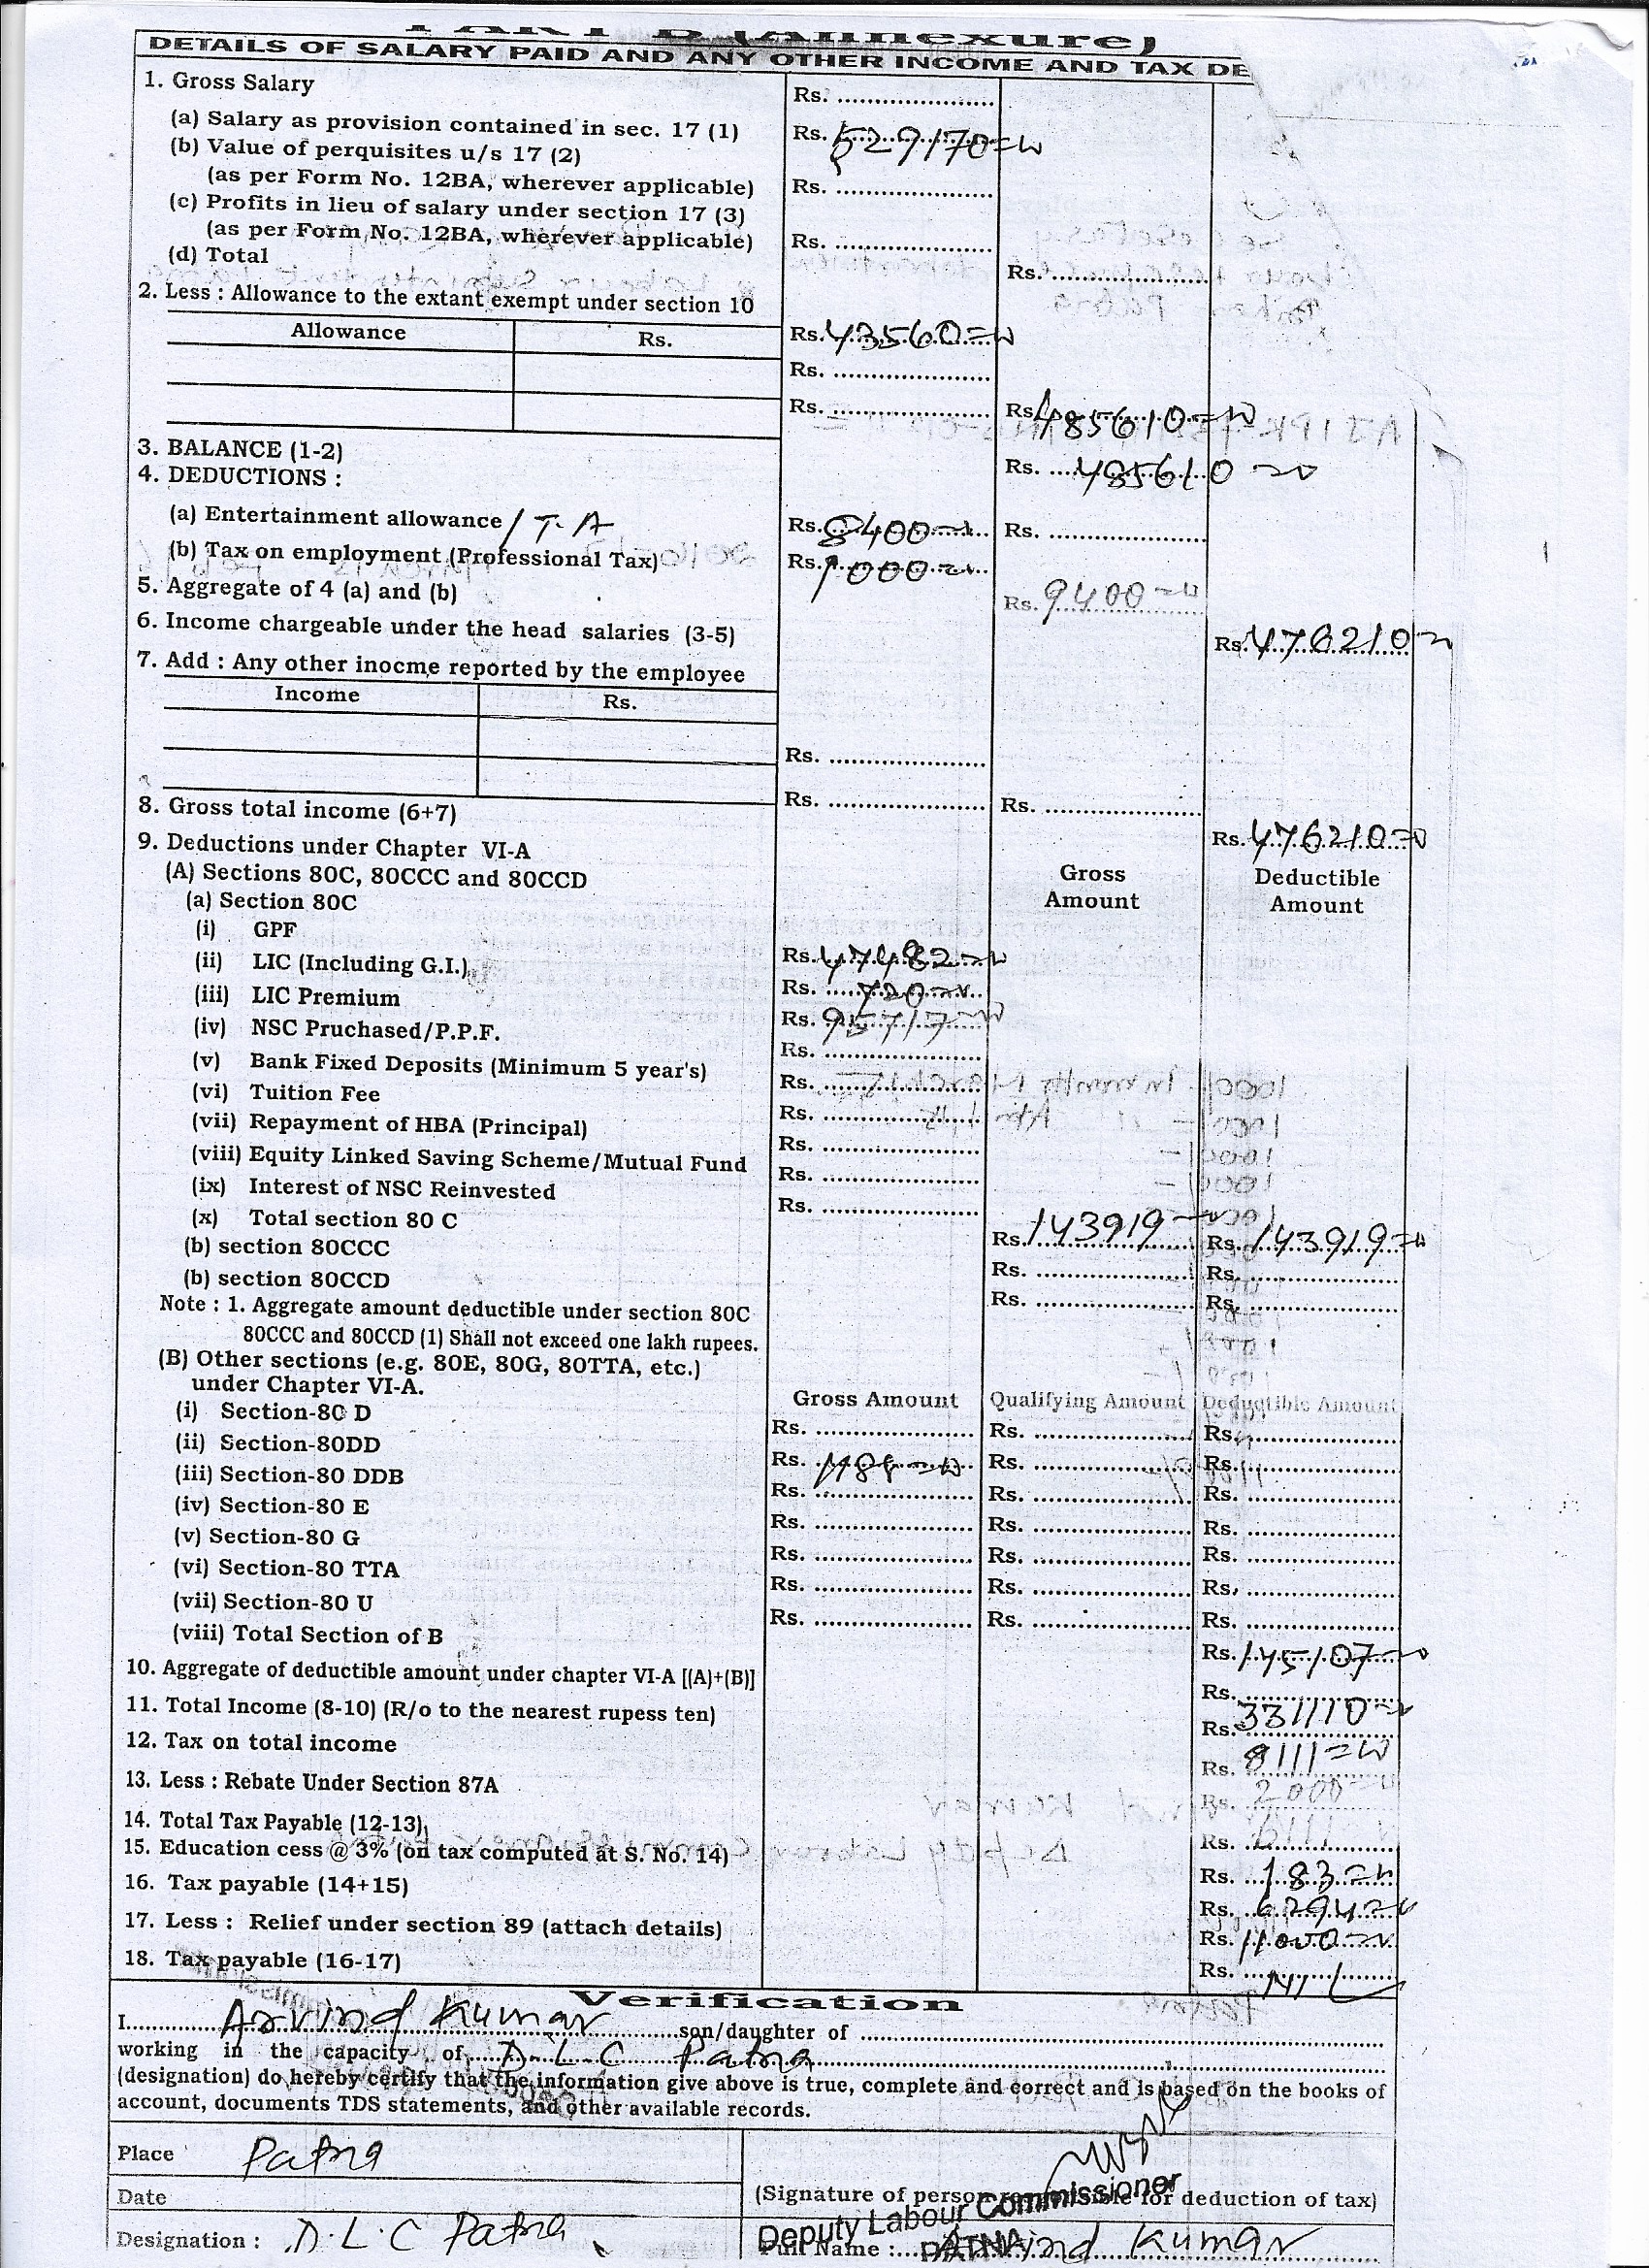 PART B (Annexure)
DETAILS OF SALARY PAID AND ANY OTHER INCOME AND TAX DE
1. Gross Salary Rs. ......................
(a) Salary as provision contained in sec. 17 (1) Rs. 529170=00
(b) Value of perquisites u/s 17 (2)
(as per Form No. 12BA, wherever applicable) Rs. ......................
(c) Profits in lieu of salary under section 17 (3)
(as per Form No. 12BA, wherever applicable) Rs. ......................
(d) Total Rs. ......................
2. Less : Allowance to the extant exempt under section 10
Allowance Rs. Rs. 43560=00
Rs. ......................
Rs. ...................... Rs. 485610=00
3. BALANCE (1-2) Rs. 485610=00
4. DEDUCTIONS :
(a) Entertainment allowance / T.A Rs. 8400=00 Rs. ......................
(b) Tax on employment (Professional Tax) Rs. 1000=00
5. Aggregate of 4 (a) and (b) Rs. 9400=00
6. Income chargeable under the head salaries (3-5) Rs. 476210=00
7. Add : Any other inocme reported by the employee
Income Rs.
Rs. ......................
8. Gross total income (6+7) Rs. ...................... Rs. ......................
Rs. 476210=00
9. Deductions under Chapter VI-A
(A) Sections 80C, 80CCC and 80CCD Gross Amount Deductible Amount
(a) Section 80C
(i) GPF
Rs. 47482=00
(ii) LIC (Including G.I.)
Rs. 720=00
(iii) LIC Premium
Rs. 95717=00
(iv) NSC Pruchased/P.P.F.
Rs. ......................
(v) Bank Fixed Deposits (Minimum 5 year's)
Rs. ......................
(vi) Tuition Fee
Rs. ......................
(vii) Repayment of HBA (Principal)
Rs. ......................
(viii) Equity Linked Saving Scheme/Mutual Fund
Rs. ......................
(ix) Interest of NSC Reinvested
Rs. ......................
(x) Total section 80 C
Rs. 143919=00 Rs. 143919=00
(b) section 80CCC
Rs. ...................... Rs. ......................
(b) section 80CCD
Rs. ...................... Rs. ......................
Note : 1. Aggregate amount deductible under section 80C
80CCC and 80CCD (1) Shall not exceed one lakh rupees.
(B) Other sections (e.g. 80E, 80G, 80TTA, etc.)
under Chapter VI-A.
Gross Amount Qualifying Amount Deductible Amount
(i) Section-80 D
Rs. ...................... Rs. ...................... Rs. ......................
(ii) Section-80DD
Rs. 1188=00 Rs. ...................... Rs. ......................
(iii) Section-80 DDB
Rs. ...................... Rs. ...................... Rs. ......................
(iv) Section-80 E
Rs. ...................... Rs. ...................... Rs. ......................
(v) Section-80 G
Rs. ...................... Rs. ...................... Rs. ......................
(vi) Section-80 TTA
Rs. ...................... Rs. ...................... Rs. ......................
(vii) Section-80 U
Rs. ...................... Rs. ...................... Rs. ......................
(viii) Total Section of B
Rs. 145107=00
10. Aggregate of deductible amount under chapter VI-A [(A)+(B)]
Rs. ......................
11. Total Income (8-10) (R/o to the nearest rupess ten)
Rs. 331110=00
12. Tax on total income
Rs. 8111=00
13. Less : Rebate Under Section 87A
Rs. 2000=00
14. Total Tax Payable (12-13)
Rs. 6111=00
15. Education cess @ 3% (on tax computed at S. No. 14)
Rs. 183=00
16. Tax payable (14+15)
Rs. 6294=00
17. Less : Relief under section 89 (attach details)
Rs. 11000=00
18. Tax payable (16-17)
Rs. NIL
Verification
I. Arvind Kumar son/daughter of ......................
working in the capacity of D.L.C Patna
(designation) do hereby certify that the information give above is true, complete and correct and is based on the books of
account, documents TDS statements, and other available records.
Place Patna
Date (Signature of person responsible for deduction of tax)
Deputy Labour Commissioner
PATNA
Designation : D.L.C Patna Full Name : Arvind Kumar